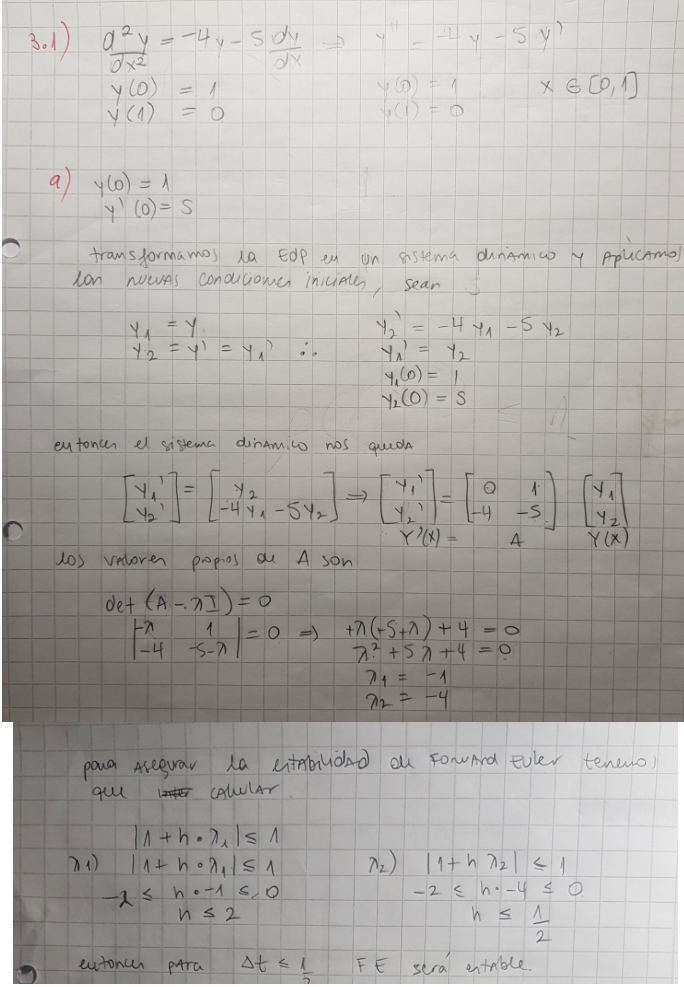 3.1) d²y/dx² = -4y - 5 dy/dx ⇒ y'' = -4y - 5y'
y(0) = 1 y(0) = 1 x ∈ [0,1]
y(1) = 0 y(1) = 0
a) y(0) = 1
y'(0) = S
transformamos la EDP en un sistema dinámico y aplicamos
las nuevas condiciones iniciales, sean
y₁ = y y₂' = -4y₁ - 5y₂
y₂ = y' = y₁' ∴ y₁' = y₂
y₁(0) = 1
y₂(0) = S
entonces el sistema dinámico nos queda
[y₁' y₂'] = [y₂ -4y₁ - 5y₂] ⇒ [y₁' y₂'] = [0 1 -4 -5] [y₁ y₂]
Y'(x) = A Y(x)
los valores propios de A son
det (A - λI) = 0
|-λ 1 -4 -5-λ| = 0 ⇒ +λ(+5+λ) + 4 = 0
λ² + 5λ + 4 = 0
λ₁ = -1
λ₂ = -4
para asegurar la estabilidad de Forward Euler tenemos
que calcular.
|1 + h·λ₁| ≤ 1
λ₁) |1 + h·λ₁| ≤ 1 λ₂) |1 + h λ₂| ≤ 1
-2 ≤ h·-1 ≤ 0 -2 ≤ h·-4 ≤ 0
h ≤ 2 h ≤ 1/2
entonces para Δt ≤ 1/2 FE será estable.